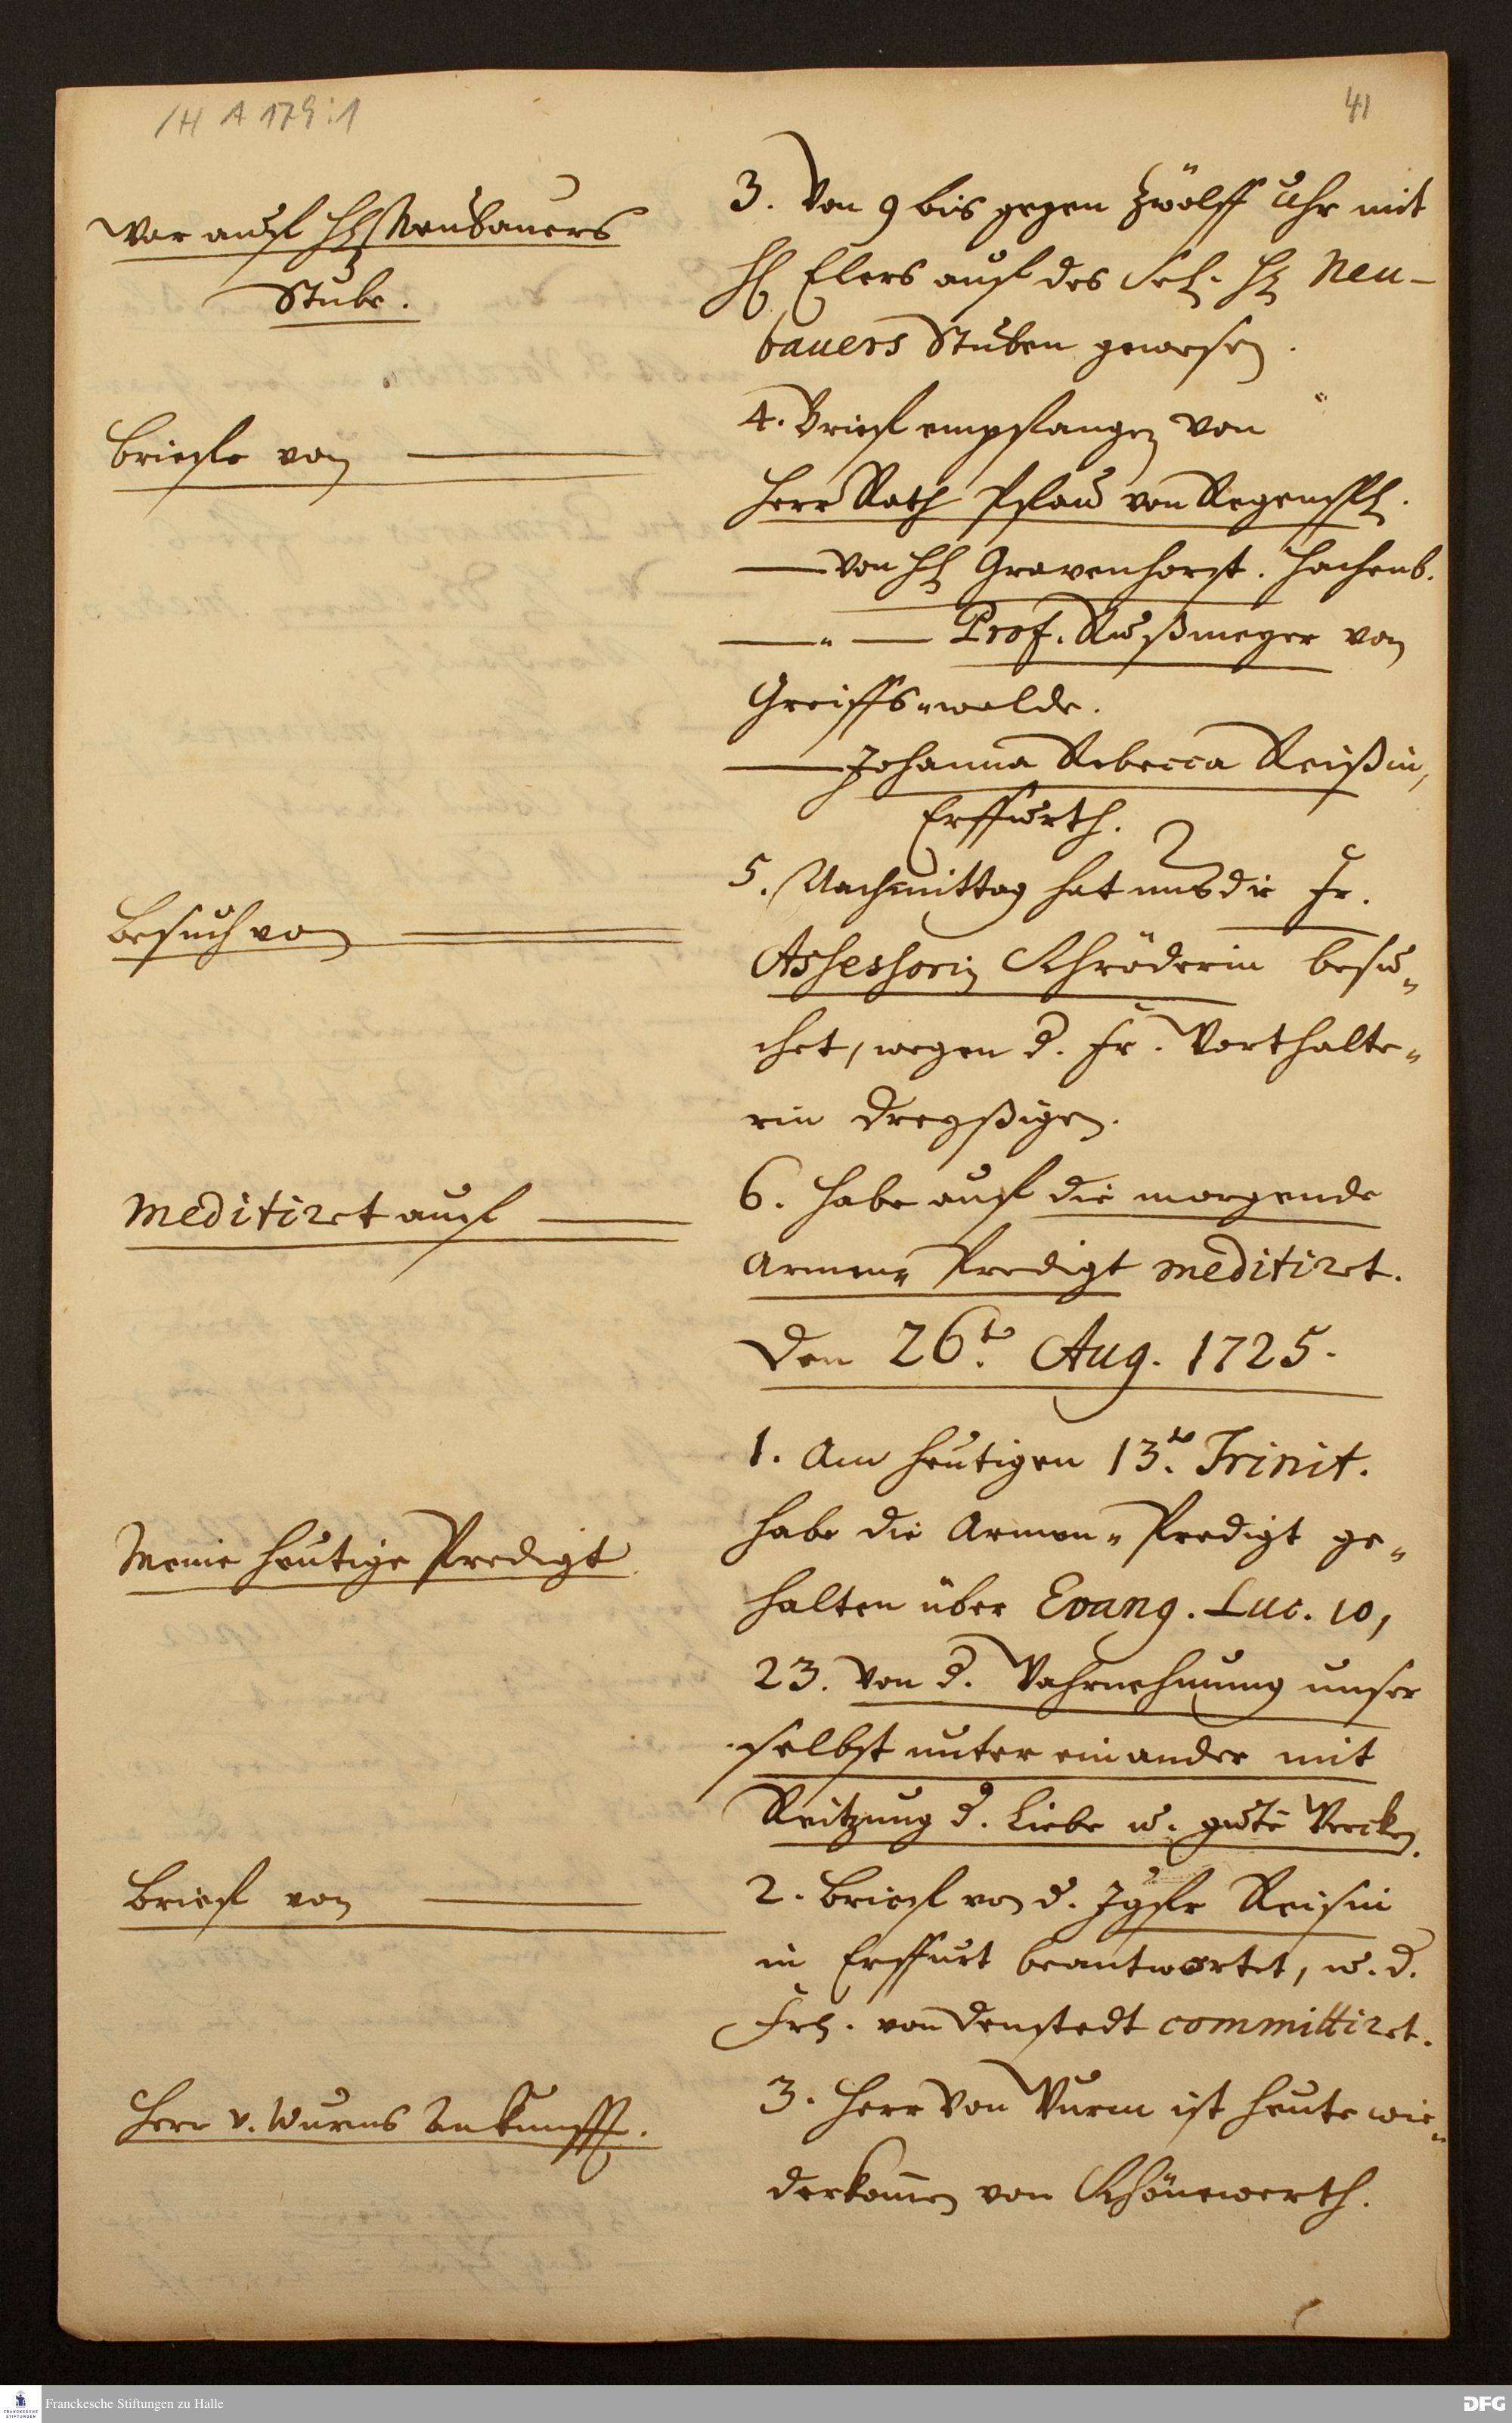 /H A 179:1
41
war auff HE Neubauers
Stube.
3. Von 9 bis gegen Zwölff Uhr mit
HE Elers auff des Sel. HE Neu-
bauers Stuben gewesen.
Brieffe von
4. Brieff empfangen von
Herr Rath Pflau von Regenspl.
von HE Gravenhorst. Hachenb.
Prof. Rußmeyer von
Greiffs-walde.
Johanna Rebecca Reißin,
Erffurth.
Besuch von
5. Nachmittag hat uns die Fr.
Assessorin Schröderin besu-
chet, wegen d. Fr. Vorthalte-
rin Dreyßigen.
meditiret auff
6. Habe auff die morgende
Armen- Predigt meditiret.
Den 26t. Aug. 1725.
1. Am heutigen 13t. Trinit.
Meine heutige Predigt.
habe die Armen-Predigt ge-
halten über Evang. Luc. 10,
23. Von d. Wahrnehmung unser
selbst unter einander mit
Reitzung d. Liebe u. gute Wercken.
Brieff von
2. Brieff von d. Jgfr Reisin
in Erffurt beantwortet, u. d.
Frl. von Denstedt committiret.
Herr v. Wurms Ankunfft.
3. Herr von Wurm ist heute wie-
derkom̅en von Schönewerth.
Franckesche Stiftungen zu Halle
DFG